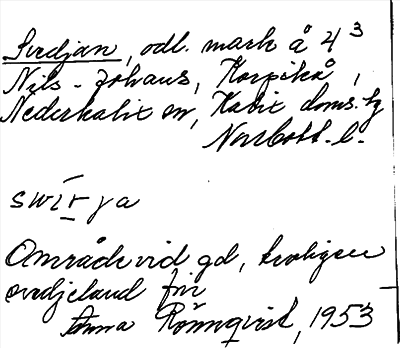 Svedjan, odl. mark å 4³
Nils-Johans, Korpikå,
Nederkalix sn, Kalix doms.hg
Norrbott. l.
swīr̲ya
Område vid gd, troligen
svedjeland för
Anna Rönnqvist, 1953